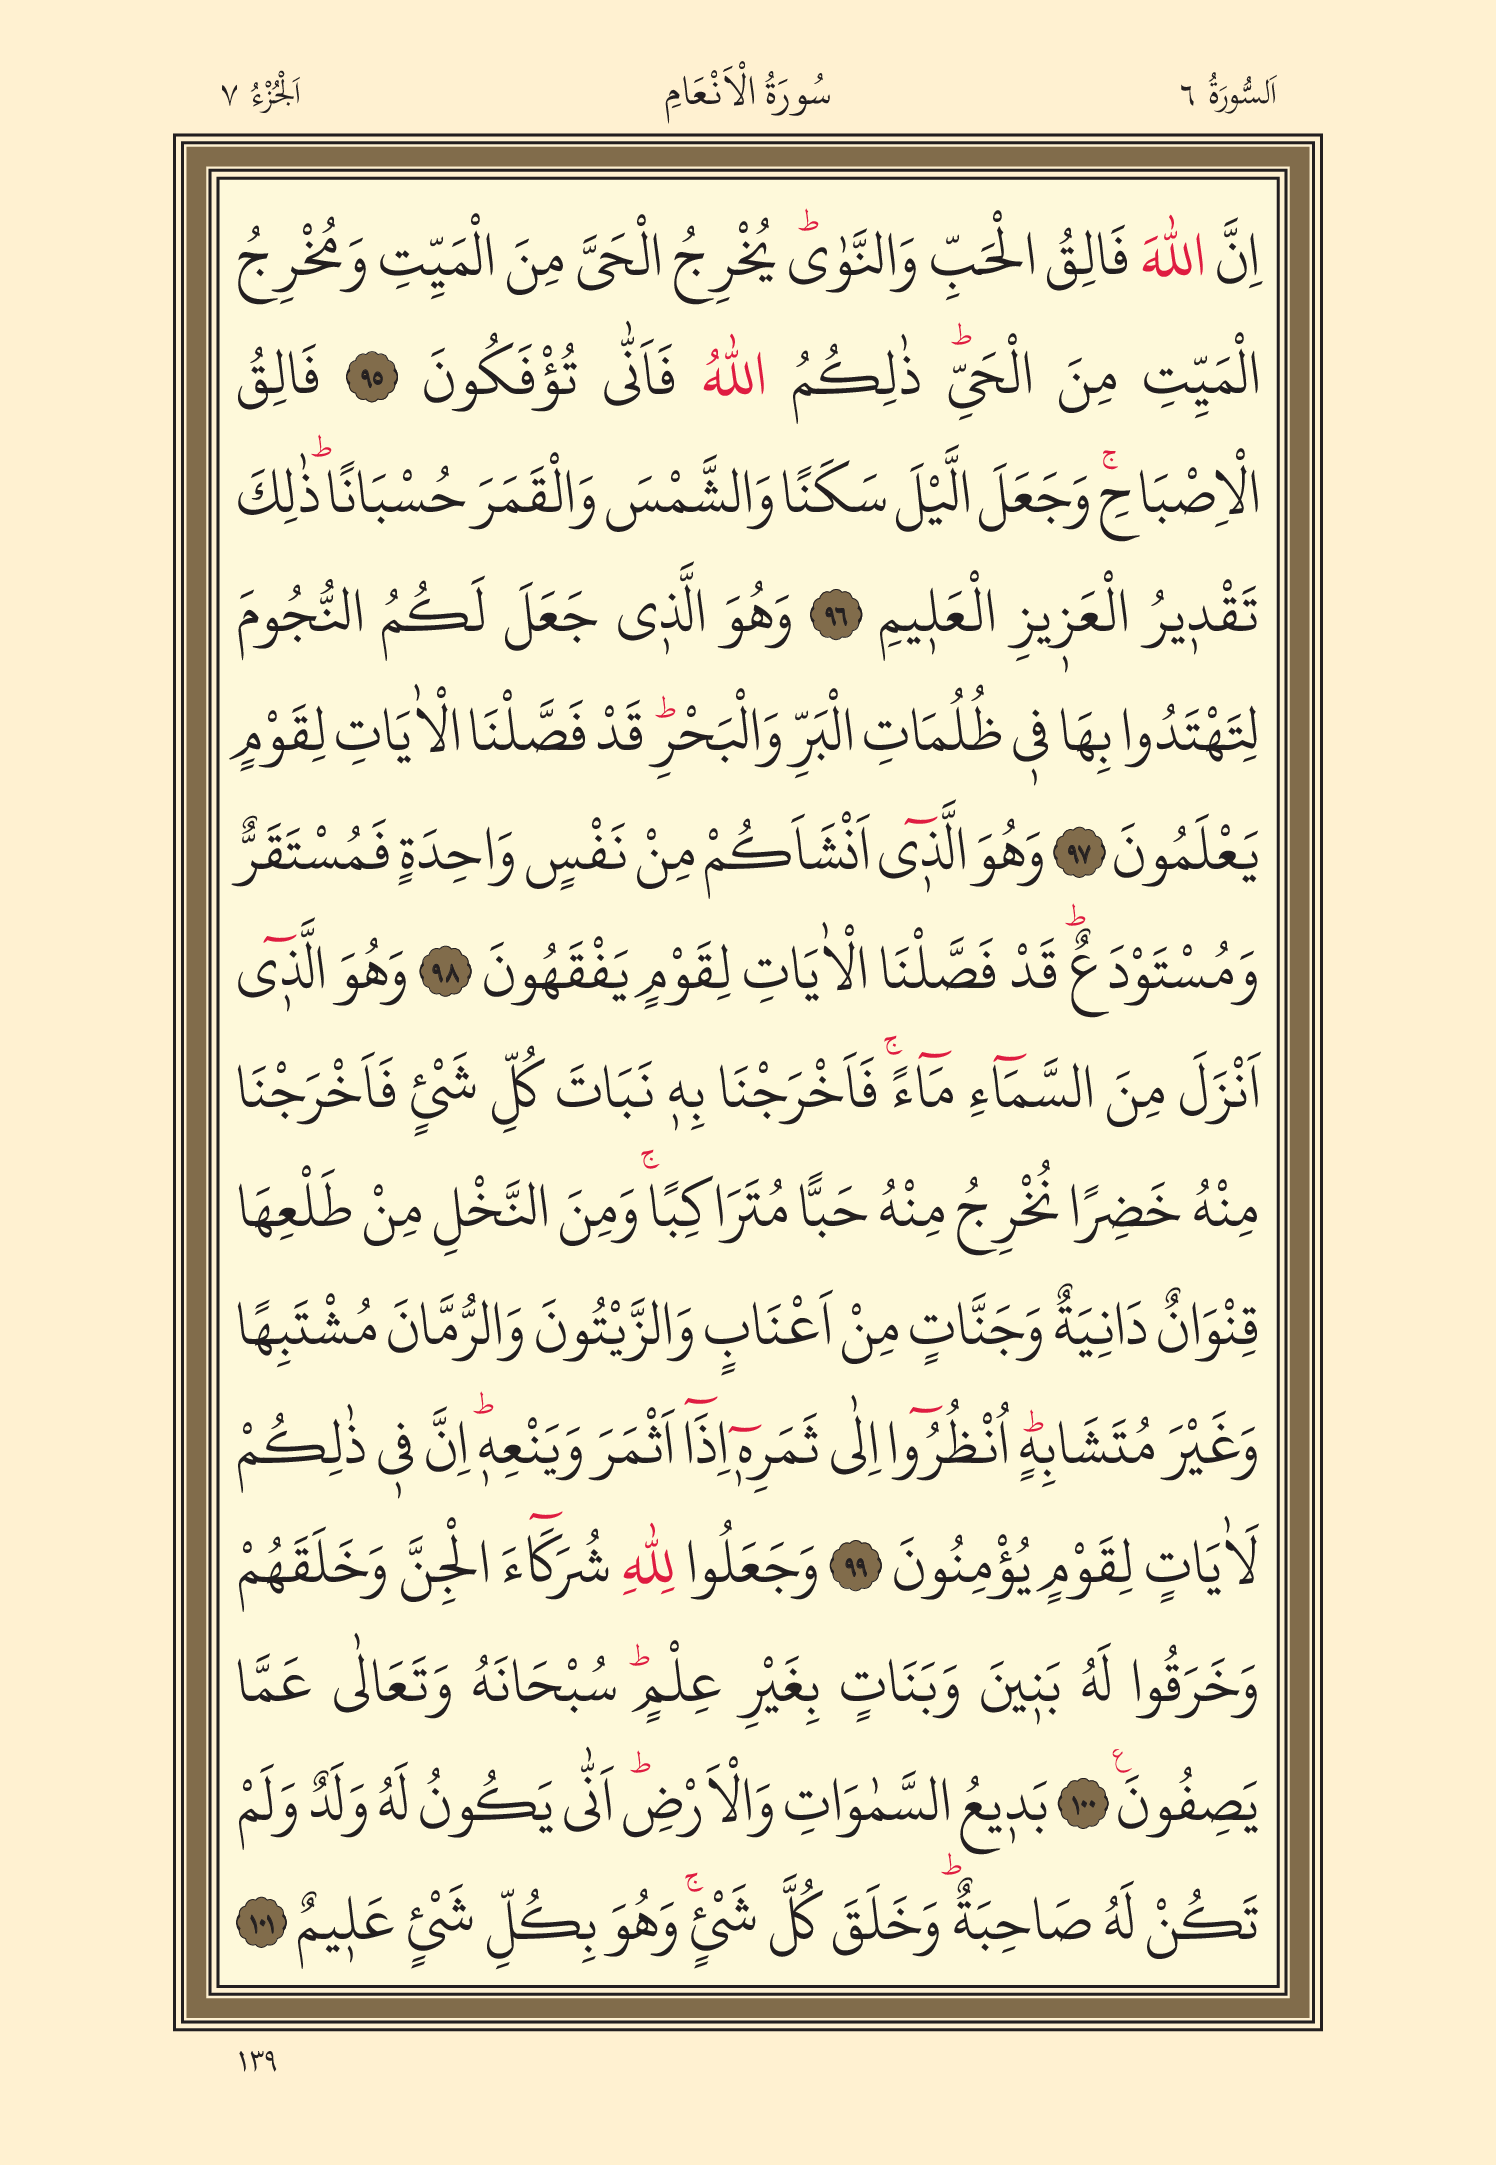 اَلسُّورَةُ ٦ سُورَةُ الْاَنْعَامِ اَلْجُزْءُ ٧
اِنَّ اللّٰهَ فَالِقُ الْحَبِّ وَالنَّوٰىۜ يُخْرِجُ الْحَىَّ مِنَ الْمَيِّتِ وَمُخْرِجُ
الْمَيِّتِ مِنَ الْحَيِّۜ ذٰلِكُمُ اللّٰهُ فَاَنّٰى تُؤْفَكُونَ ٩٥ فَالِقُ
الْاِصْبَاحِۚ وَجَعَلَ الَّيْلَ سَكَنًا وَالشَّمْسَ وَالْقَمَرَ حُسْبَانًاۜ ذٰلِكَ
تَقْد۪يرُ الْعَز۪يزِ الْعَل۪يمِ ٩٦ وَهُوَ الَّذ۪ى جَعَلَ لَكُمُ النُّجُومَ
لِتَهْتَدُوا بِهَا ف۪ي ظُلُمَاتِ الْبَرِّ وَالْبَحْرِۜ قَدْ فَصَّلْنَا الْاٰيَاتِ لِقَوْمٍ
يَعْلَمُونَ ٩٧ وَهُوَ الَّذ۪ٓى اَنْشَاَكُمْ مِنْ نَفْسٍ وَاحِدَةٍ فَمُسْتَقَرٌّ
وَمُسْتَوْدَعٌۜ قَدْ فَصَّلْنَا الْاٰيَاتِ لِقَوْمٍ يَفْقَهُونَ ٩٨ وَهُوَ الَّذ۪ٓى
اَنْزَلَ مِنَ السَّمَٓاءِ مَٓاءًۚ فَاَخْرَجْنَا بِه۪ نَبَاتَ كُلِّ شَيْئٍ فَاَخْرَجْنَا
مِنْهُ خَضِرًا نُخْرِجُ مِنْهُ حَبًّا مُتَرَاكِبًاۚ وَمِنَ النَّخْلِ مِنْ طَلْعِهَا
قِنْوَانٌ دَانِيَةٌ وَجَنَّاتٍ مِنْ اَعْنَابٍ وَالزَّيْتُونَ وَالرُّمَّانَ مُشْتَبِهًا
وَغَيْرَ مُتَشَابِهٍۜ اُنْظُرُٓوا اِلٰى ثَمَرِه۪ٓ اِذَٓا اَثْمَرَ وَيَنْعِه۪ۜ اِنَّ ف۪ي ذٰلِكُمْ
لَاٰيَاتٍ لِقَوْمٍ يُؤْمِنُونَ ٩٩ وَجَعَلُوا لِلّٰهِ شُرَكَٓاءَ الْجِنَّ وَخَلَقَهُمْ
وَخَرَقُوا لَهُ بَن۪ينَ وَبَنَاتٍ بِغَيْرِ عِلْمٍۜ سُبْحَانَهُ وَتَعَالٰى عَمَّا
يَصِفُونَ ع ١٠٠ بَد۪يعُ السَّمٰوَاتِ وَالْاَرْضِۜ اَنّٰى يَكُونُ لَهُ وَلَدٌ وَلَمْ
تَكُنْ لَهُ صَاحِبَةٌۜ وَخَلَقَ كُلَّ شَيْئٍۚ وَهُوَ بِكُلِّ شَيْئٍ عَل۪يمٌ ١٠١
١٣٩